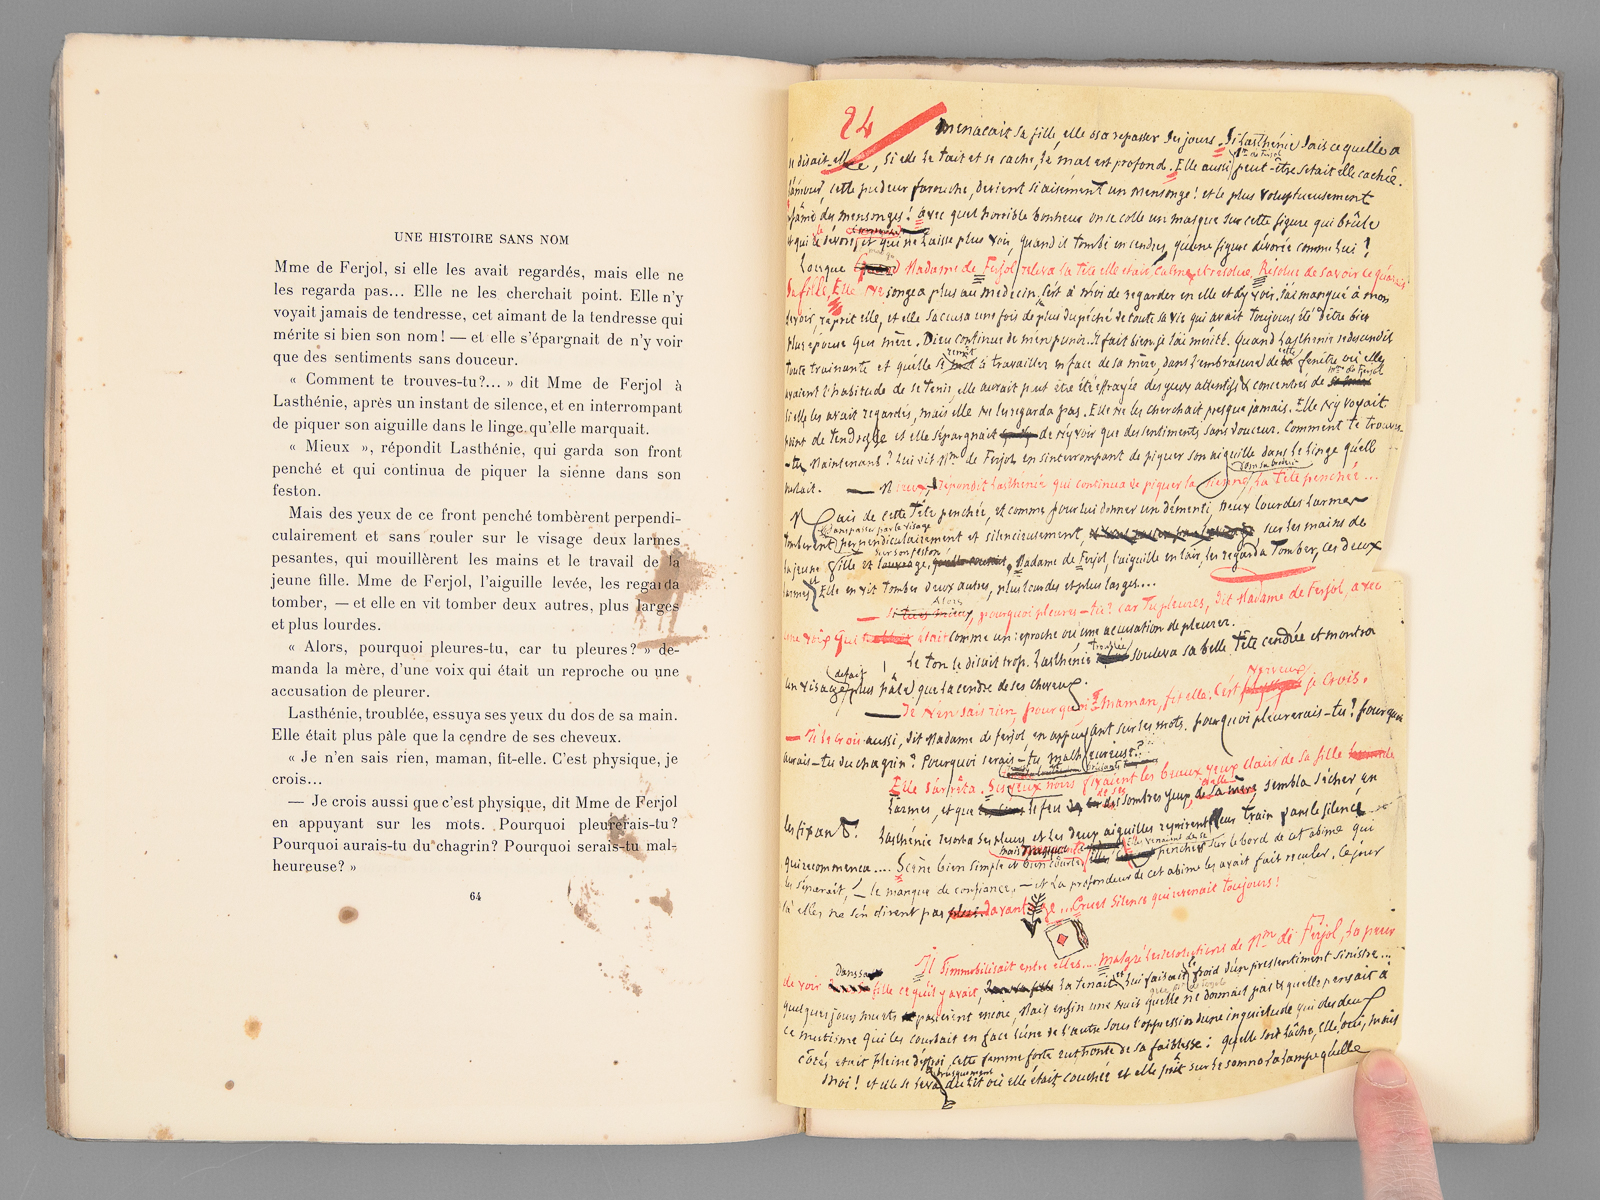 UNE HISTOIRE SANS NOM
Mme de Ferjol, si elle les avait regardés, mais elle ne
les regarda pas... Elle ne les cherchait point. Elle n'y
voyait jamais de tendresse, cet aimant de la tendresse qui
mérite si bien son nom! — et elle s'épargnait de n'y voir
que des sentiments sans douceur.
« Comment te trouves-tu?... » dit Mme de Ferjol à
Lasthénie, après un instant de silence, et en interrompant
de piquer son aiguille dans le linge qu'elle marquait.
« Mieux », répondit Lasthénie, qui garda son front
penché et qui continua de piquer la sienne dans son
feston.
Mais des yeux de ce front penché tombèrent perpendi-
culairement et sans rouler sur le visage deux larmes
pesantes, qui mouillèrent les mains et le travail de la
jeune fille. Mme de Ferjol, l'aiguille levée, les regarda
tomber, — et elle en vit tomber deux autres, plus larges
et plus lourdes.
« Alors, pourquoi pleures-tu, car tu pleures? » de-
manda la mère, d'une voix qui était un reproche ou une
accusation de pleurer.
Lasthénie, troublée, essuya ses yeux du dos de sa main.
Elle était plus pâle que la cendre de ses cheveux.
« Je n'en sais rien, maman, fit-elle. C'est physique, je
crois...
— Je crois aussi que c'est physique, dit Mme de Ferjol
en appuyant sur les mots. Pourquoi pleurerais-tu?
Pourquoi aurais-tu du chagrin? Pourquoi serais-tu mal-
heureuse? »
64
24
menaçait sa fille, elle osa repasser des jours. Si Lasthénie sait ce qu'elle a
se disait-elle, si elle se tait et se cache, le mal est profond. Elle aussi Mme de Ferjol peut-être s'était elle cachée.
l'amour, cette pudeur farouche, devient si aisément un mensonge! et le plus voluptueusement
infâme des mensonges! avec quel horrible bonheur on se colle un masque sur cette figure qui brûle
et qui ne laisse plus voir, quand il tombe en cendres, qu'une figure dévorée comme lui!
Lorsque Madame de Ferjol releva la tête elle était calme et résolue. Résolue de savoir ce qu'avait
sa fille, Elle ne songea plus au médecin. C'est à moi de regarder en elle et d'y voir. J'ai manqué à mon
devoir, reprit elle, et elle s'accusa une fois de plus du péché de toute sa vie qui avait toujours été d'être bien
plus épouse que mère. Dieu continue de m'en punir. Il fait bien je l'ai mérité. Quand Lasthénie redescendit
toute trainante et qu'elle se remit à travailler en face de sa mère, dans l'embrasure de cette fenêtre où elles
avaient l'habitude de se tenir, elle aurait peut être été effrayée des yeux attentifs & concentrés de Mme de Ferjol
si elle les avait regardés, mais elle ne les regarda pas. Elle ne les cherchait presque jamais. Elle n'y voyait
point de tendresse et elle s'épargnait de n'y voir que des sentiments sans douceur. Comment te trouves-
-tu maintenant? lui dit Mme de Ferjol en s'interrompant de piquer son aiguille dans le linge qu'elle
— Mieux, répondit Lasthénie qui continua de piquer la sienne, la tête penchée...
Mais de cette tête penchée, et comme pour lui donner un démenti, deux lourdes larmes
tombèrent sans passer par le visage perpendiculairement et silencieusement, sur les mains de
la jeune fille et sur son feston. Madame de Ferjol, l'aiguille en l'air, les regarda tomber, ces deux
larmes et Elle en vit tomber deux autres, plus lourdes et plus larges....
— Alors, pourquoi pleures-tu? car tu pleures, dit Madame de Ferjol, avec
une voix qui était comme un reproche ou une accusation de pleurer.
Le ton le disait trop. Lasthénie troublée souleva sa belle tête cendrée et montra
un visage défait plus pâle que la cendre de ses cheveux.
— Je n'en sais rien, pourquoi maman, fit elle. C'est nerveux je crois.
— Je le crois aussi, dit Madame de Ferjol en appuyant sur les mots. pourquoi pleurerais-tu? Pourquoi
aurais-tu du chagrin? Pourquoi serais-tu malheureuse?
Elle s'arrêta. Ses yeux noirs fixaient les beaux yeux clairs de sa fille
larmes, et que le feu de ses sombres yeux sembla sécher en
les fixant. Lasthénie ses pleurs et les deux aiguilles reprirent leur train dans le silence
qui recommença.... Scène bien simple et bien courte penchées sur le bord de cet abime qui
les séparait, — le manque de confiance, — et la profondeur de cet abime les avait fait reculer. Ce jour
là elles ne s'en dirent pas davantage... Cruel silence qui revenait toujours!
Il s'immobilisait entre elles.... malgré les résolutions de Mme de Ferjol, la peur
de voir dans sa fille ce qu'il y avait, la tenait et lui faisait le froid d'un pressentiment sinistre...
quelques jours muets passèrent encore, Mais enfin une nuit qu'elle ne dormait pas & qu'elle pensait à
ce mutisme qui les courbait en face l'une de l'autre sous l'oppression d'une inquiétude qui des deux
côtés était pleine d'effroi, cette femme forte eut honte de sa faiblesse: qu'elle soit lâche, Elle, oui, mais
Moi! et elle se leva brusquement du lit où elle était couchée et elle prit sur le somno la lampe qu'elle